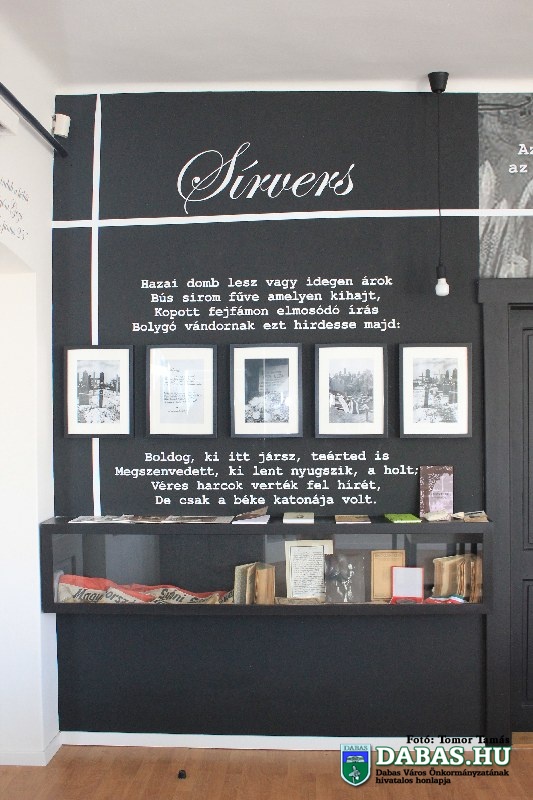 Sírvers
Az
az
Hazai domb lesz vagy idegen árok
Bús sirom fűve amelyen kihajt,
Kopott fejfámon elmosódó írás
Bolygó vándornak ezt hirdesse majd:
Boldog, ki itt jársz, teérted is
Megszenvedett, ki lent nyugszik, a holt;
Véres harcok verték fel hírét,
De csak a béke katonája volt.
Fotó: Tomor Tamás
DABAS
DABAS.HU
Dabas Város Önkormányzatának
hivatalos honlapja